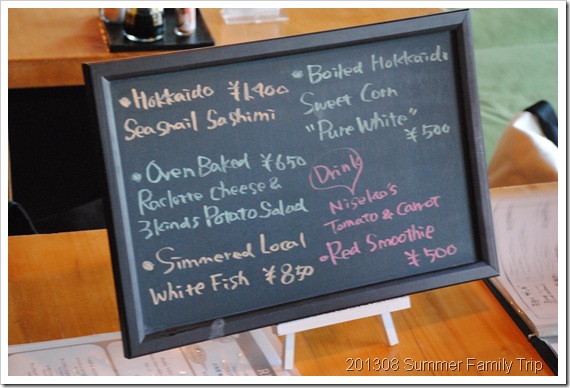 • Hokkaido ¥1,400
Seasnail Sashimi
• Oven Baked ¥650
Raclette Cheese &
3kinds Potato Salad
• Simmered Local
White Fish ¥850
• Boiled Hokkaido
Sweet Corn
"Pure White"
¥500
Drink
Niseko's
Tomato & Carrot
• Red Smoothie
¥500
201308 Summer Family Trip